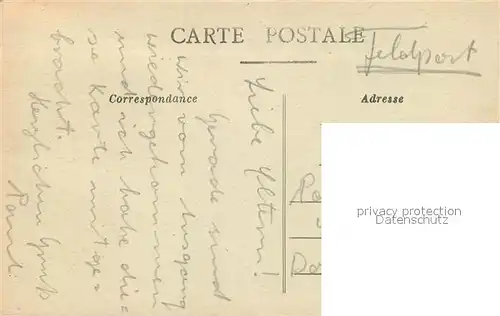 CARTE POSTALE
Feldpost
Correspondance
Adresse
Liebe Eltern!
Gerade sind
wir vom Ausgang
wiedergekommen
und ich habe die=
se Karte mitge=
bracht.
Herzlichen Gruß
privacy protection
www.oldthing.com